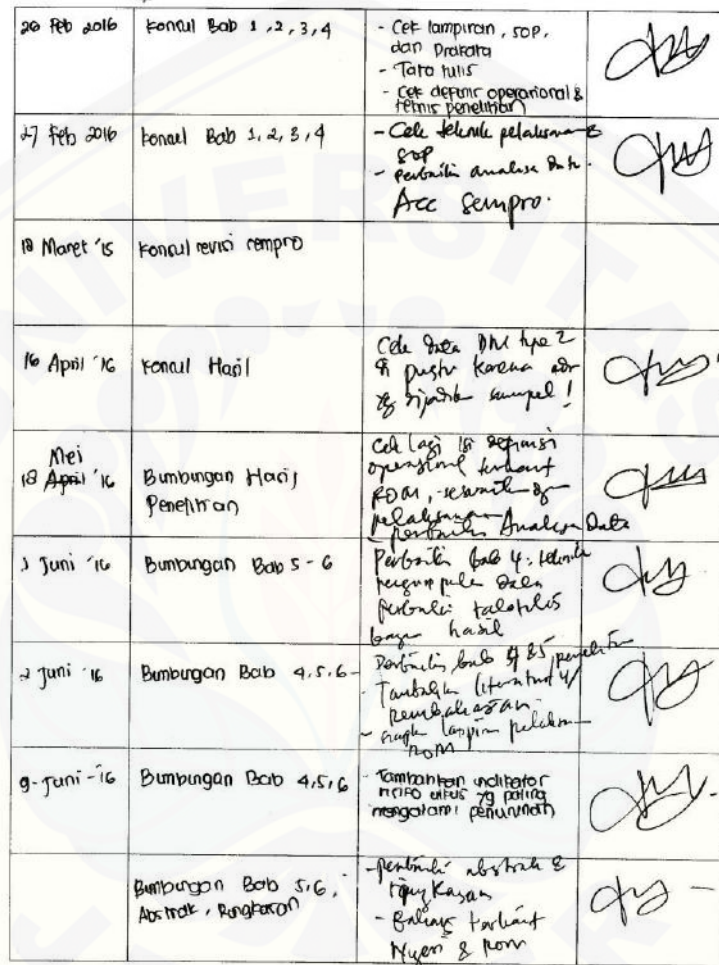 20 Feb 2016
Konsul Bab 1, 2, 3, 4
- Cek lampiran, SOP,
dan Prakata
- Tata tulis
- Cek definisi operasional &
teknis penelitian
27 Feb 2016
Konsul Bab 1, 2, 3, 4
- Cek teknik pelaksanaan &
SOP
- perbaiki analisa data.
Acc Sempro.
18 Maret '15
Konsul revisi sempro
16 April '16
Konsul Hasil
Cek data DM type 2
di pustu karena ada
yg dijadikan sampel!
Mei
18 April '16
Bimbingan Hasil
Penelitian
Cek lagi isi definisi
operasional terkait
ROM, sesuaikan dgn
pelaksanaan
- perbaiki Analisa Data
Juni '16
Bimbingan Bab 5 - 6
Perbaiki bab 4: teknik
pengumpulan data
Perbaiki
bagian hasil
2 Juni '16
Bimbingan Bab 4, 5, 6 -
Perbaiki bab 4 & 5
- Tambahkan literatur u/
pembahasan
- lampiran
ROM
9 - Juni - 16
Bimbingan Bab 4, 5, 6
- Tambahkan indikator
ulkus yg paling
mengalami penurunan
Bimbingan Bab 5, 6,
Abstrak, Ringkasan
- perbaiki abstrak &
ringkasan
- terkait
Nyeri & ROM
UNIVERSITAS